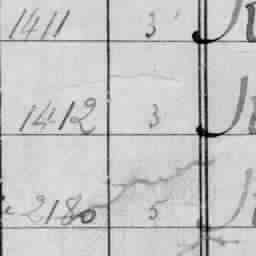 1411 3
1412 3
2180 5